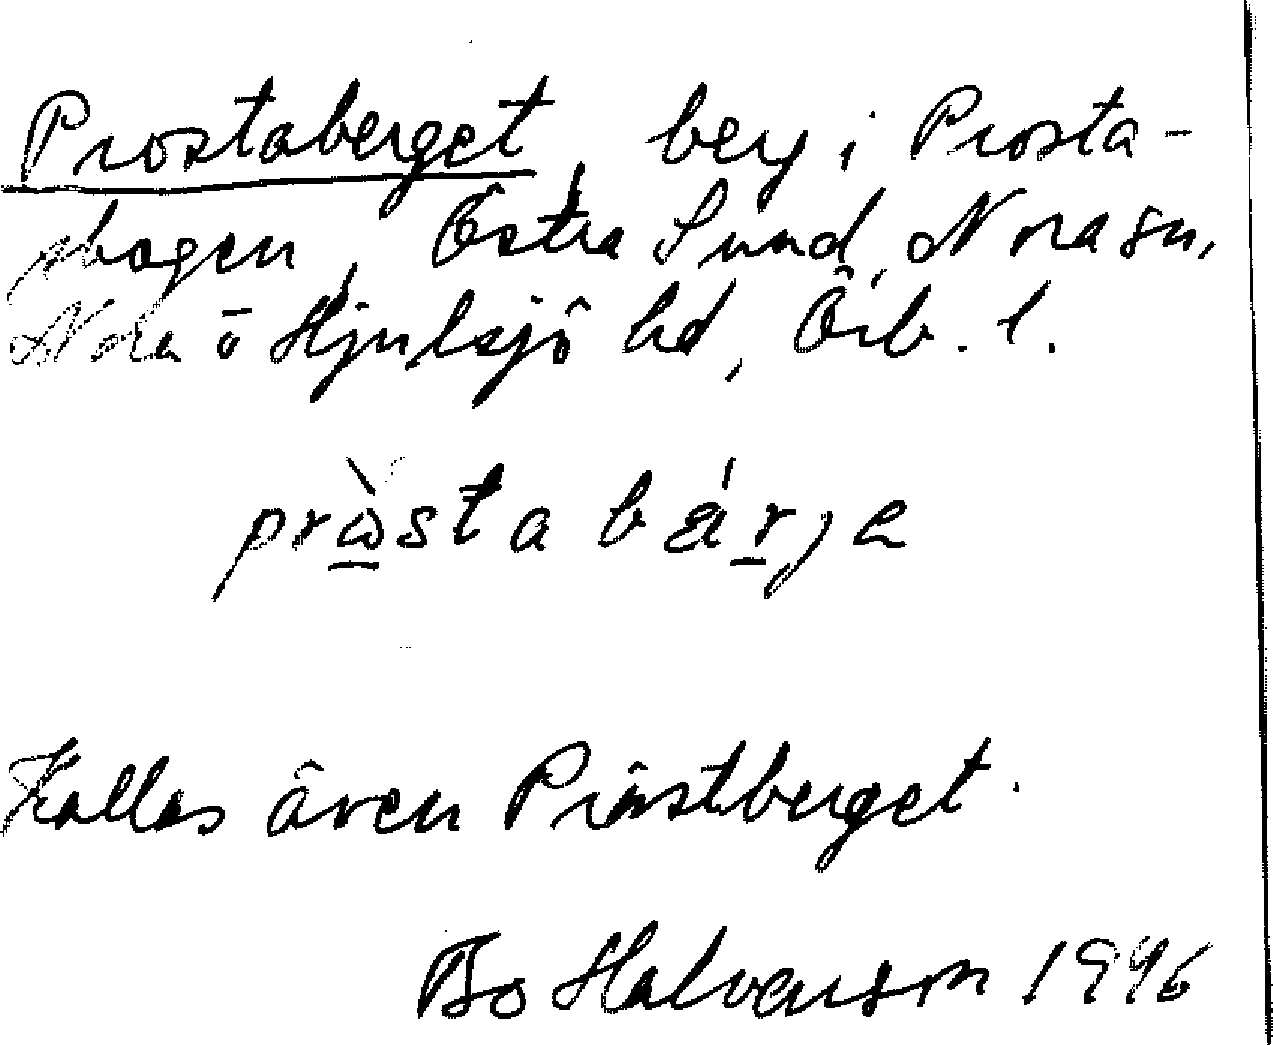 Prostaberget, berg i Prosta-
skogen, Östra Sund, Nora sn,
Nora o Hjulsjö hd, Örb. l.
pròsta bärje
Kallas även Prästberget.
Bo Halvarson 1996